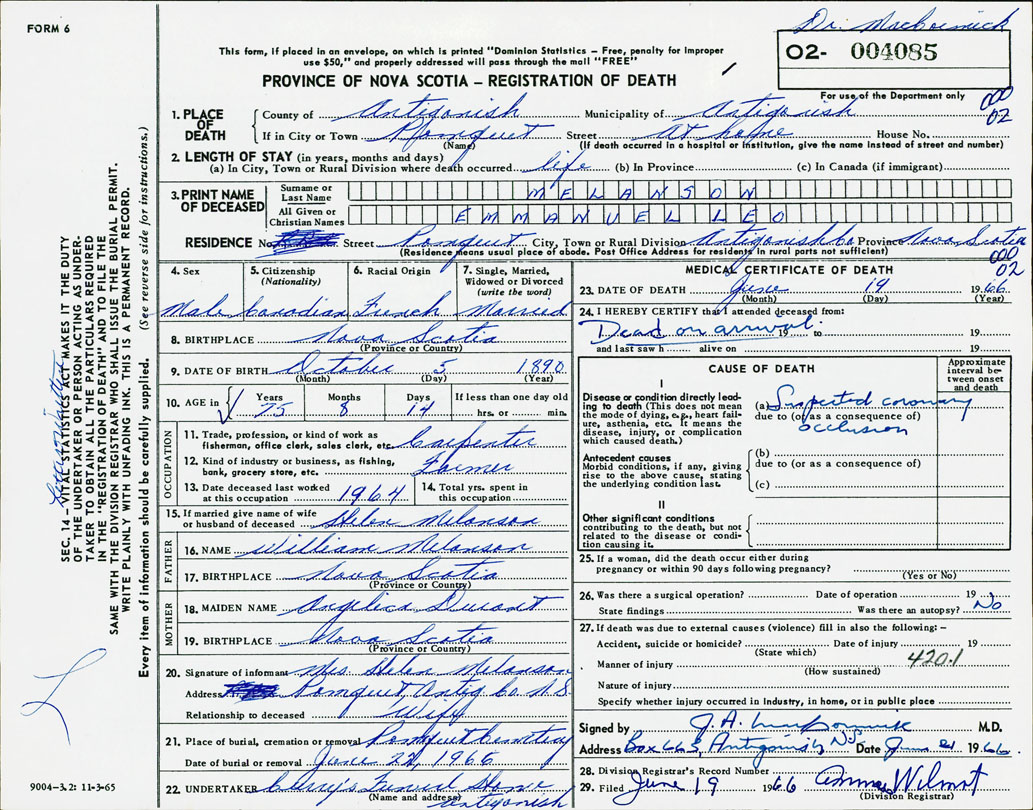 FORM 6
Dr. MacCormick
This form, if placed in an envelope, on which is printed "Dominion Statistics – Free, penalty for improper
use $50," and properly addressed will pass through the mail "FREE"
O2- 004085
PROVINCE OF NOVA SCOTIA – REGISTRATION OF DEATH
For use of the Department only
000
02
1. PLACE OF DEATH County of Antigonish Municipality of Antigonish
If in City or Town Pomquet Street At home House No.
(Name) (If death occurred in a hospital or institution, give the name instead of street and number)
2. LENGTH OF STAY (in years, months and days)
(a) In City, Town or Rural Division where death occurred life (b) In Province (c) In Canada (if immigrant)
3. PRINT NAME OF DECEASED Surname or Last Name MELANSON
All Given or Christian Names EMMANUEL LEO
RESIDENCE No. Street Pomquet City, Town or Rural Division Antigonish Co Province Nova Scotia
(Residence means usual place of abode. Post Office Address for residents in rural parts not sufficient)
000
02
4. Sex Male
5. Citizenship (Nationality) Canadian
6. Racial Origin French
7. Single, Married, Widowed or Divorced (write the word) Married
8. BIRTHPLACE Nova Scotia
(Province or Country)
9. DATE OF BIRTH October 5 1890
(Month) (Day) (Year)
10. AGE in Years 75 Months 8 Days 14 If less than one day old hrs. or min.
OCCUPATION
11. Trade, profession, or kind of work as
fisherman, office clerk, sales clerk, etc. Carpenter
12. Kind of industry or business, as fishing,
bank, grocery store, etc. Farmer
13. Date deceased last worked
at this occupation 1964
14. Total yrs. spent in
this occupation
15. If married give name of wife
or husband of deceased Helen Melanson
FATHER
16. NAME William Melanson
17. BIRTHPLACE Nova Scotia
(Province or Country)
MOTHER
18. MAIDEN NAME Angelica Durant
19. BIRTHPLACE Nova Scotia
(Province or Country)
20. Signature of informant Mrs Helen Melanson
Address Pomquet, Antig Co N.S.
Relationship to deceased Wife
21. Place of burial, cremation or removal Pomquet Cemetery
Date of burial or removal June 22, 1966
22. UNDERTAKER Funeral Home
(Name and address) Antigonish
MEDICAL CERTIFICATE OF DEATH
23. DATE OF DEATH June 19 1966
(Month) (Day) (Year)
24. I HEREBY CERTIFY that I attended deceased from:
Dead on arrival 19 to 19
and last saw h alive on 19
CAUSE OF DEATH
Approximate interval between onset and death
I
Disease or condition directly lead-
ing to death (This does not
mean the mode of dying, e.g., heart fail-
ure, asthenia, etc. It means the
disease, injury, or complication
which caused death.)
(a) Suspected coronary
due to (or as a consequence of)
occlusion
Antecedent causes
Morbid conditions, if any, giving
rise to the above cause, stating
the underlying condition last.
(b)
due to (or as a consequence of)
(c)
II
Other significant conditions
contributing to the death, but not
related to the disease or condi-
tion causing it.
25. If a woman, did the death occur either during
pregnancy or within 90 days following pregnancy?
(Yes or No)
26. Was there a surgical operation? Date of operation 19
State findings Was there an autopsy? No
27. If death was due to external causes (violence) fill in also the following: –
Accident, suicide or homicide? Date of injury 19
(State which)
Manner of injury 420.1
(How sustained)
Nature of injury
Specify whether injury occurred in Industry, in home, or in public place
Signed by J. A. MacCormick M.D.
Address Box 665, Antigonish N.S. Date June 21 1966
28. Division Registrar's Record Number
29. Filed June 19 1966 Wilmot
(Division Registrar)
SEC. 14 – VITAL STATISTICS ACT MAKES IT THE DUTY
OF THE UNDERTAKER OR PERSON ACTING AS UNDER-
TAKER TO OBTAIN ALL THE PARTICULARS REQUIRED
IN THE "REGISTRATION OF DEATH" AND TO FILE THE
SAME WITH THE DIVISION REGISTRAR WHO SHALL ISSUE THE BURIAL PERMIT.
WRITE PLAINLY WITH UNFADING INK. THIS IS A PERMANENT RECORD.
Every item of information should be carefully supplied. (See reverse side for instructions.)
9004-3.2: 11-3-65